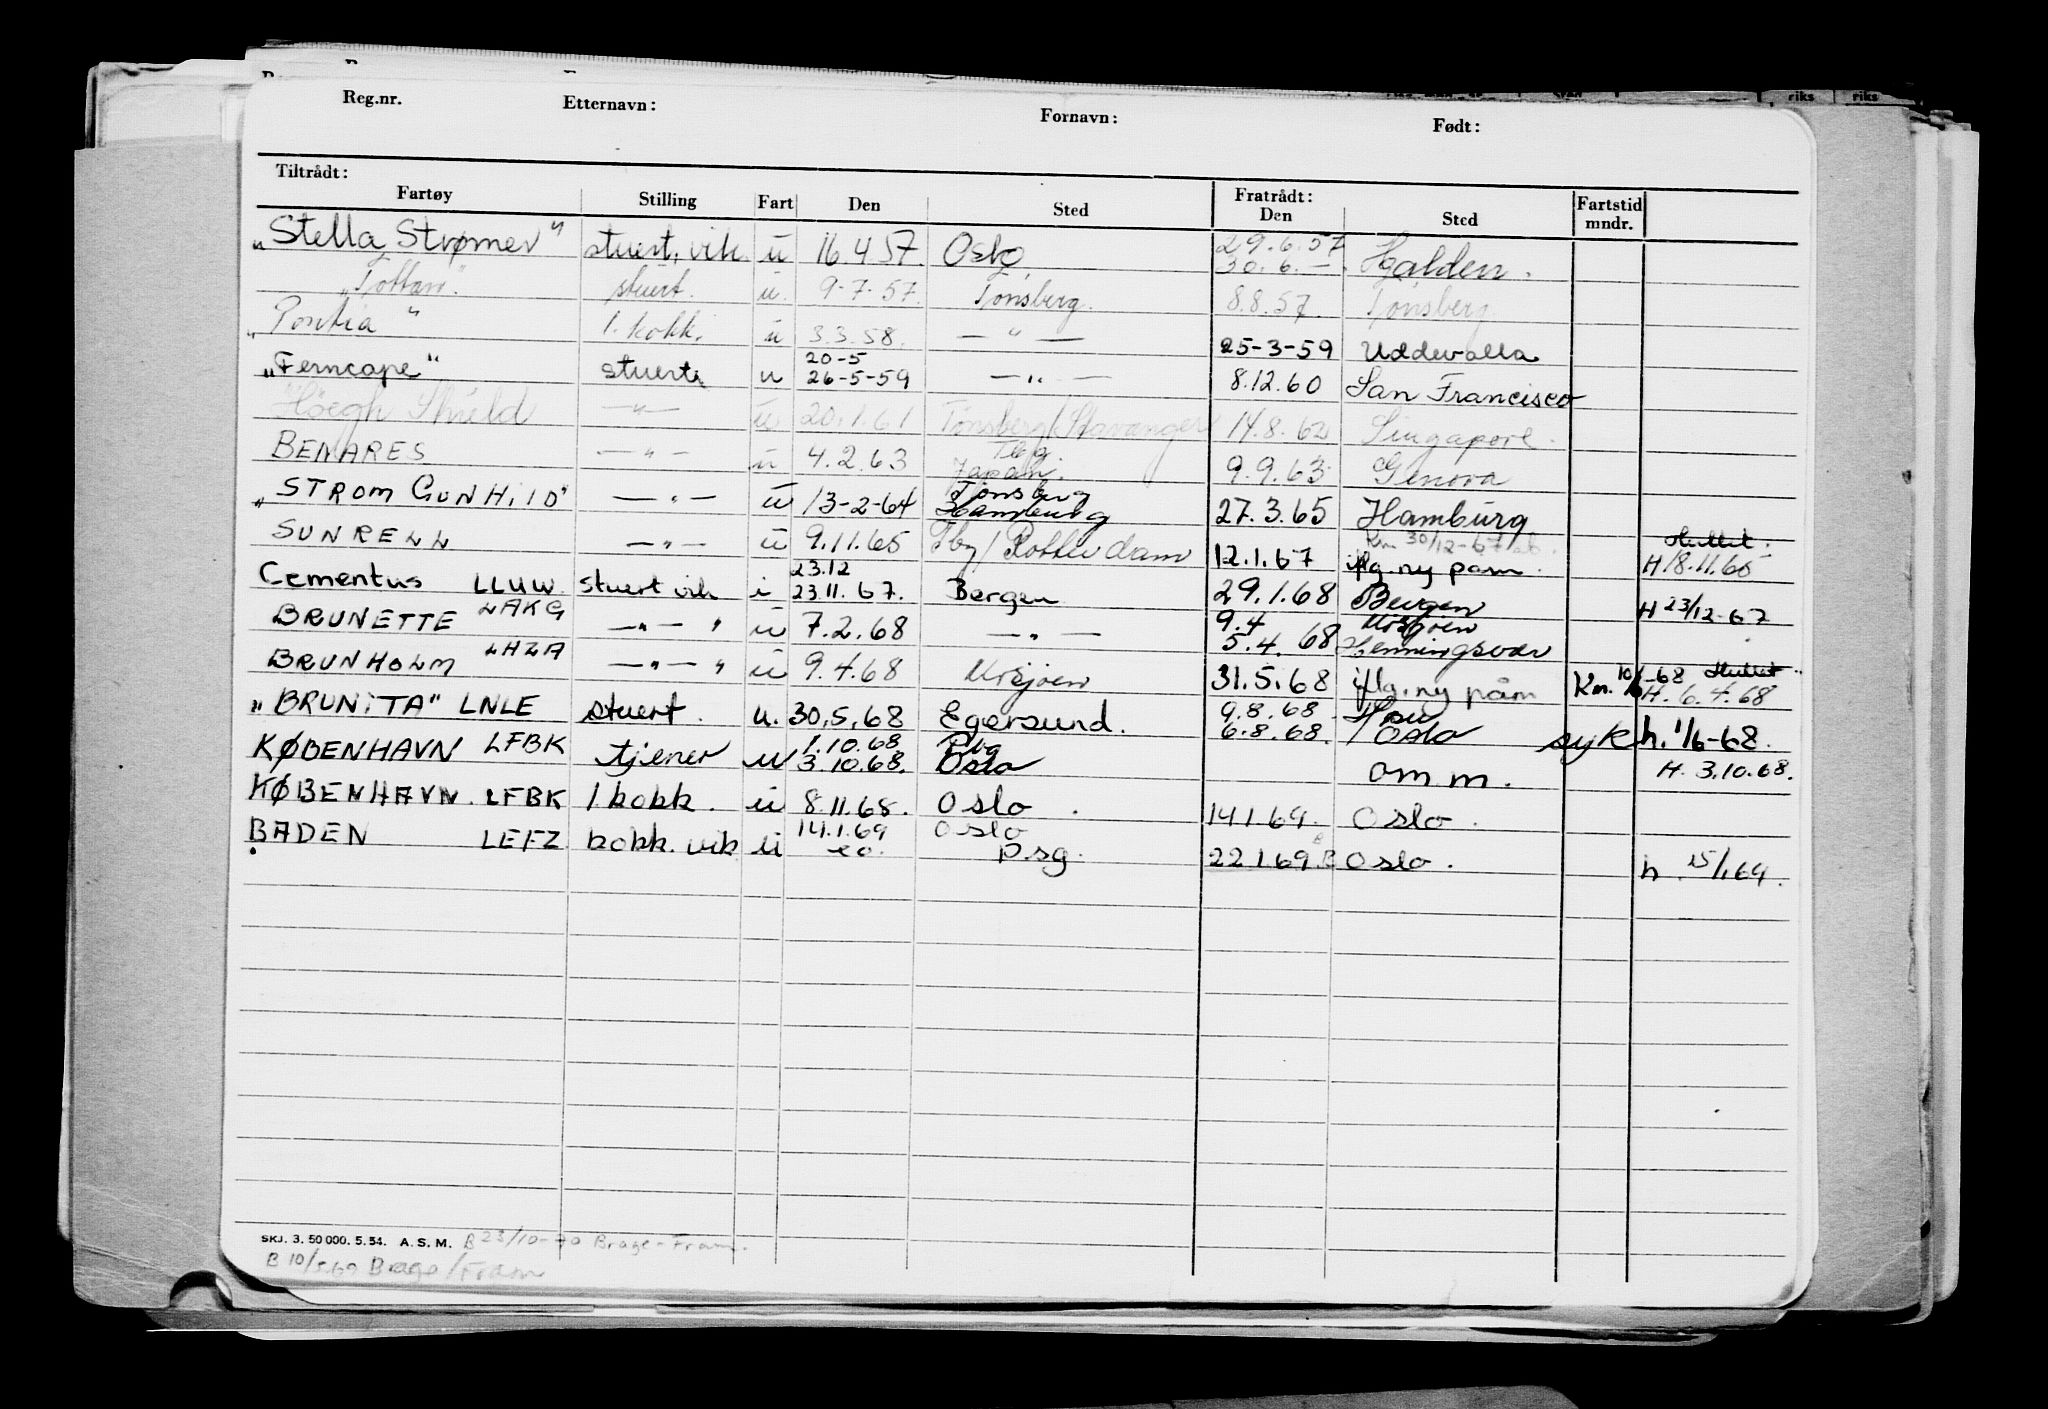 Reg.nr. Etternavn: Fornavn: Født:
riks riks
Tiltrådt: Fratrådt:
Fartøy Stilling Fart Den Sted Den Sted Fartstid mndr.
"Stella Strømer" stuert. vik u 16.4.57. Oslo 29.6.57 30.6.— Halden.
"Tottan". stuert. u. 9-7-57. Tønsberg. 8.8.57. Tønsberg
"Pontia" 1. kokk. u 3.3.58. —"— 25-3-59 Uddevalla
"Ferncape" stuert u 20-5 26-5-59 —"— 8.12.60 San Francisco
Höegh Shield —"— u 20.1.61 Tønsberg/Stavanger 14.8.62 Singapore.
BENARES —"— u 4.2.63 Tbg. Japan. 9.9.63 Genova
"STROM GUNHILD" —"— u 13-2-64 Tønsberg Hamburg 27.3.65 Hamburg
SUNRELL —"— u 9.11.65 Tbg/Rotterdam 12.1.67 Km 30/12-67 iflg. ny påm. Sluttet. H 18.11.65
Cementus LLUW. stuert vik i 23.12 23.11.67. Bergen 29.1.68 Bergen H 23/12-67
BRUNETTE LAKG —"— " u 7.2.68 —"— 9.4 5.4.68 Mosjøen Henningsvær
BRUNHOLM LHZA —"— " u 9.4.68 Mosjøen 31.5.68 iflg. ny påm Km. 10/6-68 Sluttet H. 6.4.68
"BRUNITA" LNLE stuert. u. 30.5.68 Egersund. 9.8.68 6.8.68. Oslo syk h. 1/6-68.
KØBENHAVN LFBK tjener u 1.10.68 3.10.68. Oslo om m. H. 3.10.68.
KØBENHAVN. LFBK 1 kokk. u 8.11.68. Oslo. 14.1.69. Oslo.
BADEN LEFZ kokk. vik u 14.1.69 20. Oslo Psg. 22.1.69. B Oslo. h. 15/1.69.
SKJ. 3. 50 000. 5. 54. A. S. M. B 23/10-70 Brage-Fram.
B 10/5.69 Brage/Fram